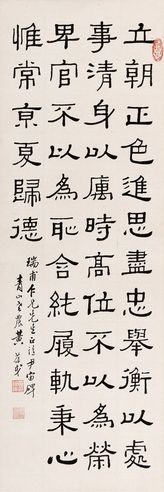 立朝正色進思盡忠舉衡以處
事清身以厲時高位不以為榮
卑官不以為恥含純履軌秉心
惟常京夏歸德
瑞甫仁兄先生正臨尹宙碑
青山老農黃葆戉